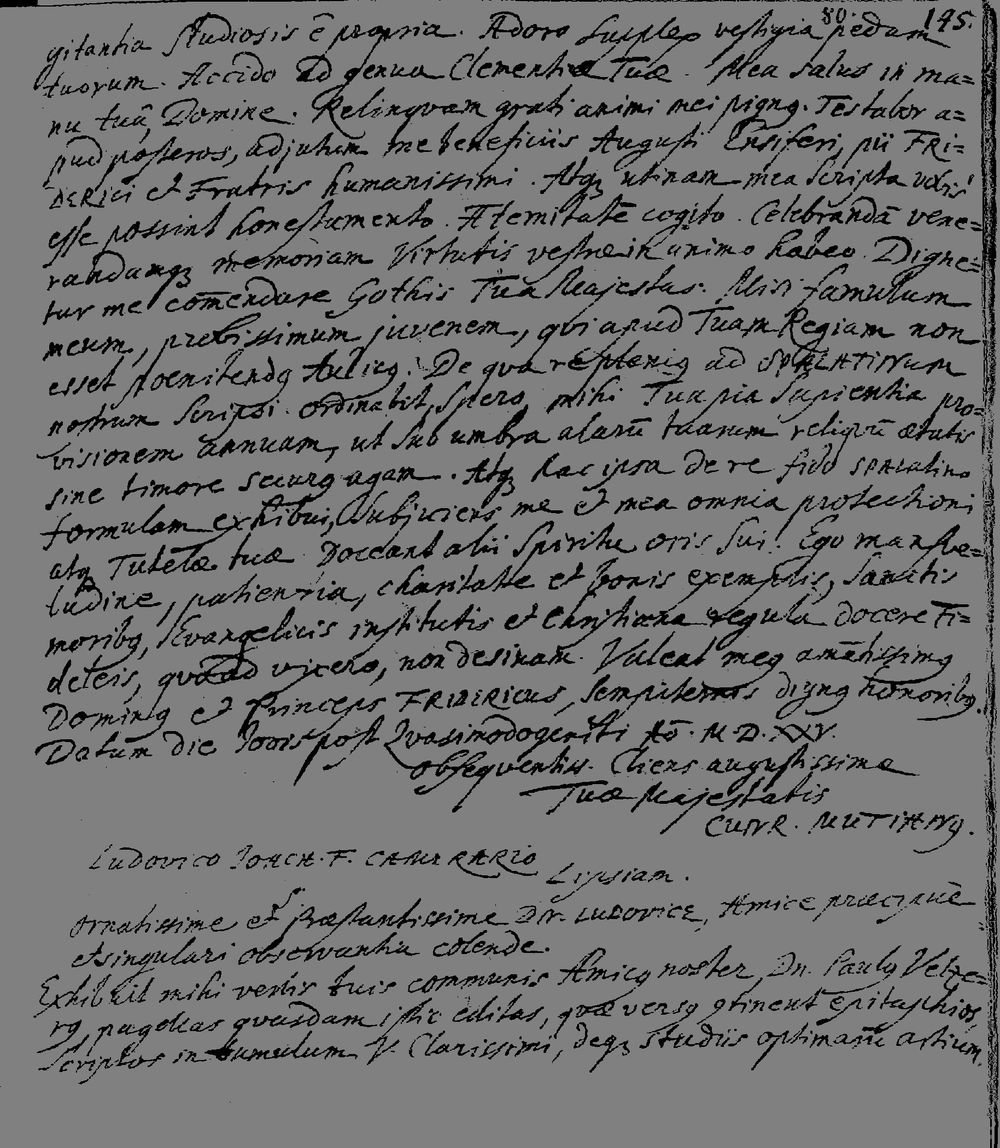 80. 195.
gitantia studiosis ē propria. Adoro supplex vestigia pedum
tuorum. Accido ad genua Clementiæ Tuæ. Mea salus in ma=
nu tuâ, Domine. Relinquam grati animi mei pignq. Testabor a=
pud posteros, adjutum me beneficiis Augusti Ensiferi, pii FRI=
DERICI et Fratris humanissimi. Atqz utinam mea scripta vobis
esse possint honestamento. Æternitatē cogito. Celebrandā vene=
randamqz memoriam Virtutis vestræ in animo habeo. Digne=
tur me com̄endare Gothis Tua Majestas. Misi famulum
meum, probissimum juvenem, qvi apud Tuam Regiam non
esset poenitendq Aulicq. De qva re pleniq ad SPALATINUM
nostrum scripsi. Ordinabit, spero, mihi Tua pia Sapientia pro=
visionem annuam, ut sub umbra alarū tuarum reliqvū ætatis
sine timore securq agam. Atqz hac ipsa de re fido SPALATino
formulam exhibui, subjiciens me et mea omnia protectioni
atqz Tutelæ tuæ. Doceant alii Spiritu oris sui. Ego mansve=
tudine, patientia, charitate et bonis exemplis, sanctis
moribq, Evangelicis institutis et Christiana regula docere Fi=
deleis, quoad vixero, non desinam. Valeat meq amātissimq
Dominq et Princeps FRIDERICUS, sempiternis dignq honoribq.
Datum die Jovis post Qvasimodogeniti Aō. M.D.XXV.
Obseqventiss. Cliens augustissimæ
Tuæ Majestatis
CUNR. MUTIANq.
LUDOVICO JOACH. F. CAMERARIO
Lipsiam.
Ornatissime et Præstantissime Dn. LUDOVICE, Amice præcipuè
et singulari observantia colende.
Exhibuit mihi verbis tuis communis Amicq noster, Dn. Paulq Melze=
rq, pagellas qvasdam istic editas, qvæ versq 9tinent epitaphios
scriptos in tumulum V. Clarissimi, deqz studiis optimarū artium